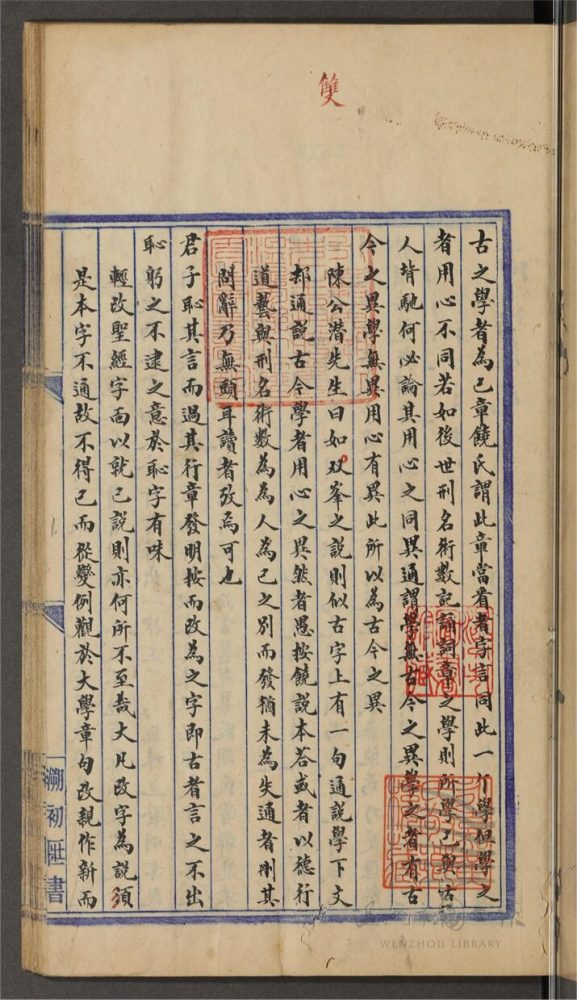 雙
古之學者為己章饒氏謂此章當看者字言同此一个學但學之
者用心不同若如後世刑名術數記誦詞章之學則所學已與古
人背馳何必論其用心之同異通謂學無古今之異學之者有古
今之異學無異用心有異此所以為古今之異
陳公潛先生曰如双峯之說則似古字上有一句通說學下文
却通說古今學者用心之異然者愚按饒說本荅或者以德行
道藝與刑名術數為為人為己之別而發猶未為失通者刪其
問辭乃無頭耳讀者攷焉可也
君子恥其言而過其行章發明按而改為之字即古者言之不出
恥躬之不逮之意於恥字有味
輕改聖經字面以就己說則亦何所不至哉大凡改字為說須
是本字不通故不得已而從變例觀於大學章句改親作新而
瀨初匨書
WENZHOU LIBRARY